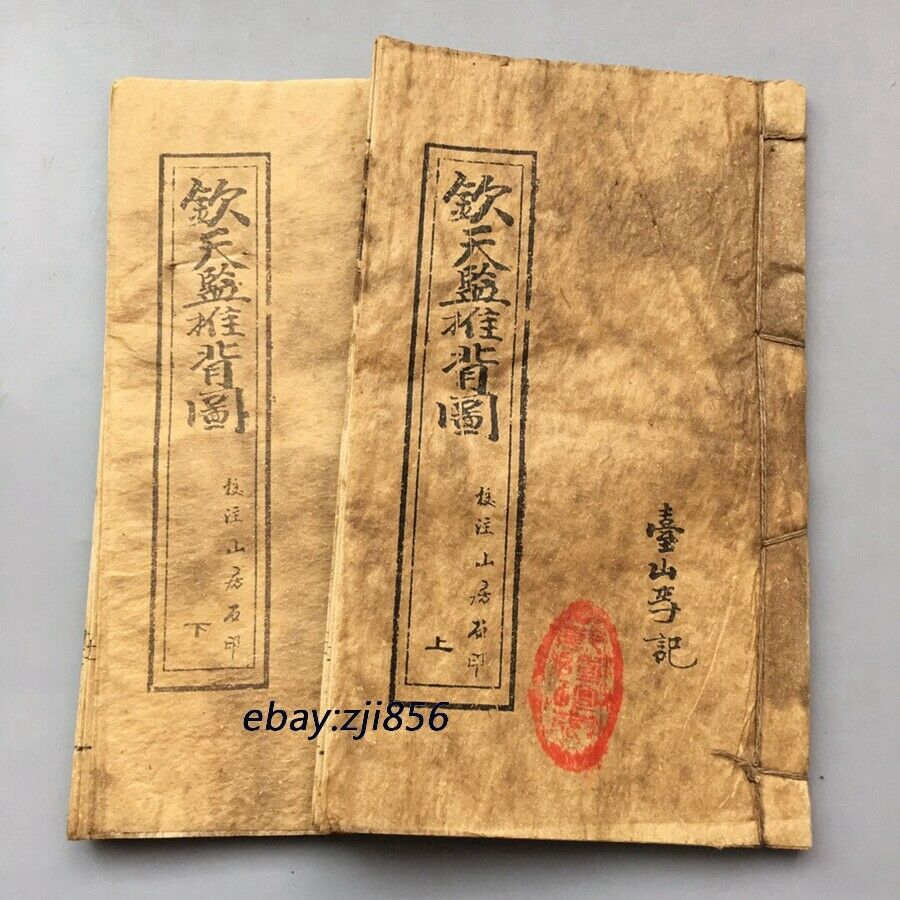 欽天監推背圖
校注山房石印
下
欽天監推背圖
校注山房石印
上
臺山
記
ebay:zji856